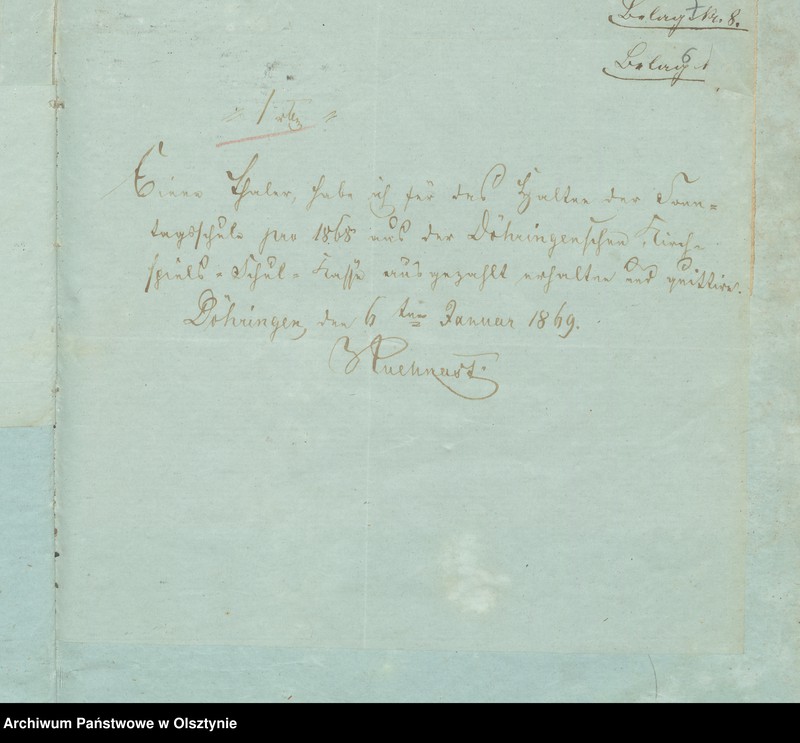 Belag Nr. 8.
Belag
1 rtl
Einen Thaler, habe ich für das Halten der Sonn=
tagsschule pro 1868 aus der Döhringenschen Kirch=
spiels=Schul=Kasse ausgezahlt erhalten und quittire.
Döhringen, den 6 ten Januar 1869.
Archiwum Państwowe w Olsztynie